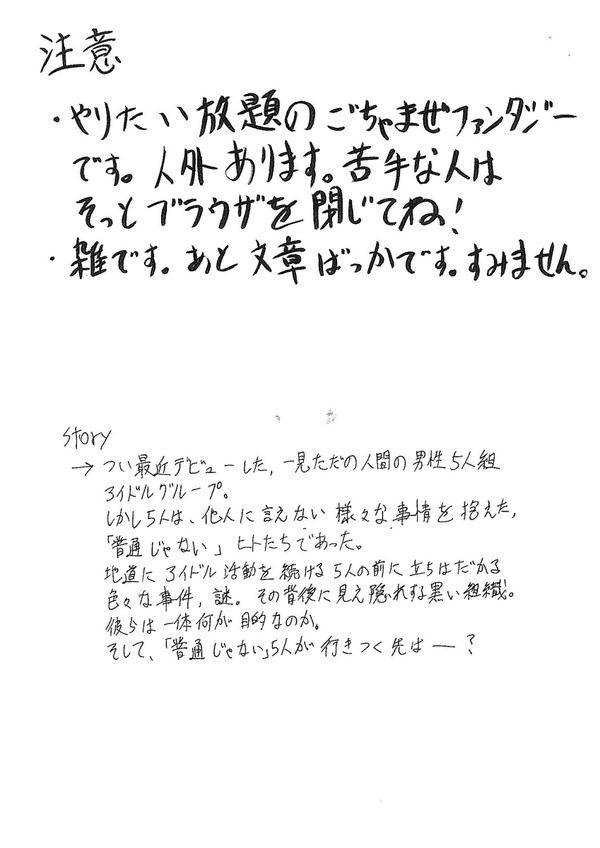 注意
・やりたい放題のごちゃまぜファンタジー
です。人外あります。苦手な人は
そっとブラウザを閉じてね!
・雑です。あと文章ばっかです。すみません。
Story
→つい最近デビューした,一見ただの人間の男性5人組
アイドルグループ。
しかし5人は、他人に言えない様々な事情を抱えた,
「普通じゃない」ヒトたちであった。
地道にアイドル活動を続ける5人の前に立ちはだかる
色々な事件,謎。その背後に見え隠れする黒い組織。
彼らは一体何が目的なのか。
そして、「普通じゃない」5人が行きつく先は―?